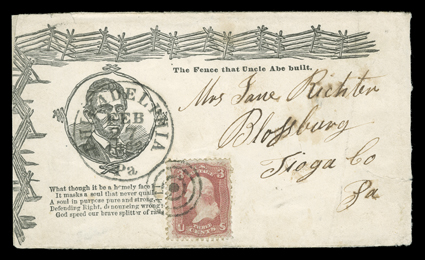 The Fence that Uncle Abe built.
PHILADELPHIA
FEB
Pa
Mrs Jane Richter
Blossburg
Tioga Co
Pa
What though it be a homely face
It masks a soul that never quails
A soul in purpose pure and strong,
Defending Right, denouncing wrong
God speed our brave splitter of rails
3 3
U S
CENTS